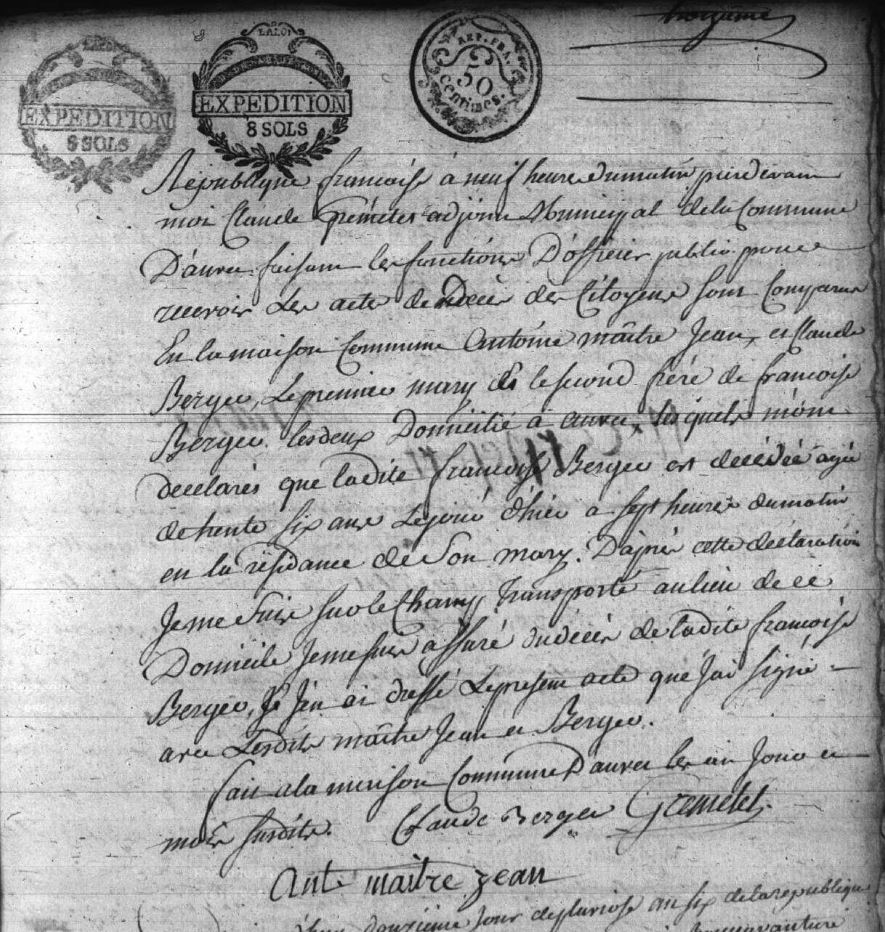 LA LOI
EXPEDITION
8 SOLS
LA LOI
EXPEDITION
8 SOLS
REP. FRA.
50
Centimes.
Republique francoise à neuf heure du matin pardevant
moi Claude adjoint Municipal de la Commune
D'auvex faisant les fonctions D'officier public pour
recevoir les acte de Décès des Citoyens sont Comparus
En la maison Commune Antoine maître Jean, et Claude
Berger, le premier mary et le second frère de francoise
Berger. les deux Domicilié à auvex, lesquels m'ont
declarés que ladite francoise Berger est décédée agée
de trente six ans le jour d'hier a sept heures du matin
en la résidance de Son mary. D'après cette déclaration
Je me suis sur le Champ Transporté au lieu de ce
Domicile Je me suis assuré du décès de ladite francoise
Berger, Je J'en ai dressé Le present acte que J'ai signé
avec Lesdits maître Jean et Berger.
fait a la maison Commune D'auvex les an Jour et
mois susdits. Claude Berger Gremelet
Ant. maitre jean
douzième Jour de pluviose an six de la republique